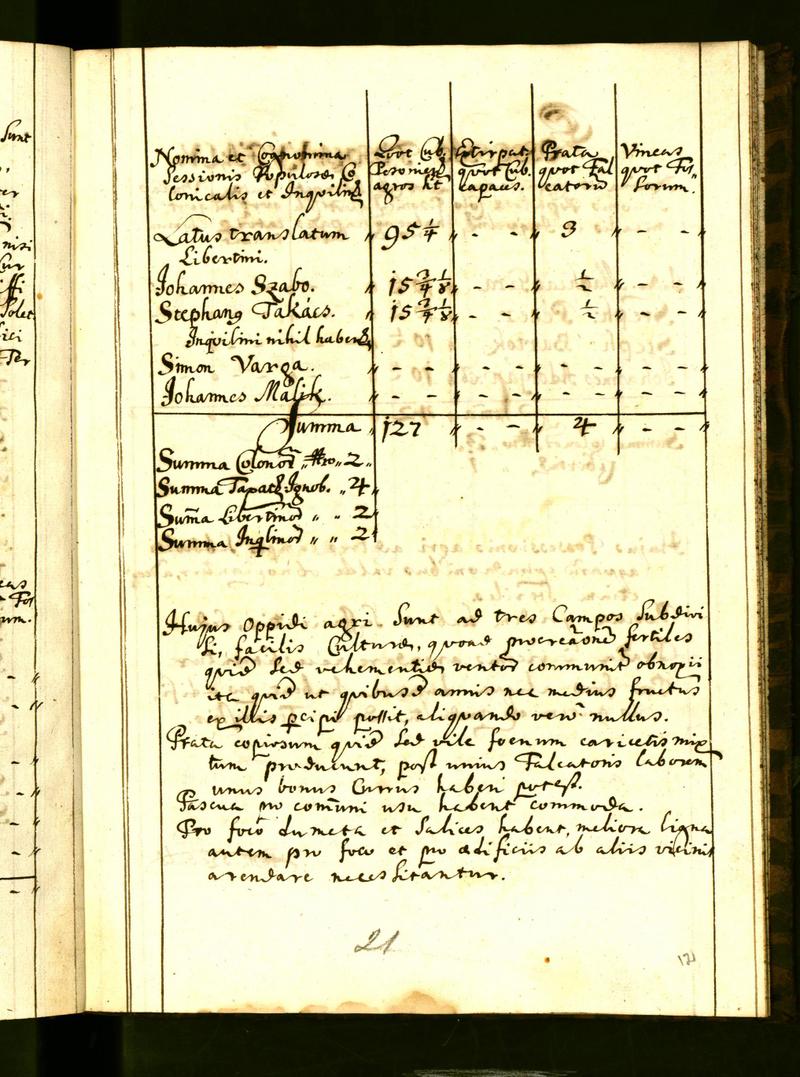 Nomina et Cognomina
Sessionis Populosæ Co
lonicalis et Inquilin
Quot Cub.
Posonien
agros ht
Extirpat.
quot Cub.
capaces.
Prata
quot Fal
catorũ
Vineas
quot Fos-
sorum.
Latus translatum „ 95 1/4 „ - - „ 3 „ - - „
Libertini.
Johannes Szabo. „ 15 3/4 1/8 „ - - „ 1/2 „ - - „
Stephang Takács. „ 15 3/4 1/8 „ - - „ 1/2 „ - - „
Inquilini nihil habent
Simon Varga. „ - - - „ - - „ - - - „ - - „
Johannes Malik. „ - - - „ - - „ - - - „ - - „
Summa „ 127 „ - - „ 4 „ - - „
Summa Colonor „ „ 2 „
Summa Ignob. „ 4 „
Sum̃a Libertinor „ „ 2 „
Summa Inqlinor „ „ 2 „
Hujus Oppidi agri sunt ad tres Campos subdivi
si, facilis Culturæ, quoad procreãonẽ fertiles
quidẽ sed vehementiæ ventor communitr obnoxii
ita quidẽ ut quibusd annis nec medius fructus
ex illis pcipi possit, aliquando verõ nullus.
Prata copiosum quidẽ sed vile foenum caricetis mix
tum producunt, post unius Falcatoris laborem
unus bonus Currus haberi potest.
Pascua pro com̃uni usu habent commoda.
Pro foco dumeta et Salices habent, meliora ligna
autem pro foco et pro ædificiis ab aliis vicinis
arendare necessitantur.
21